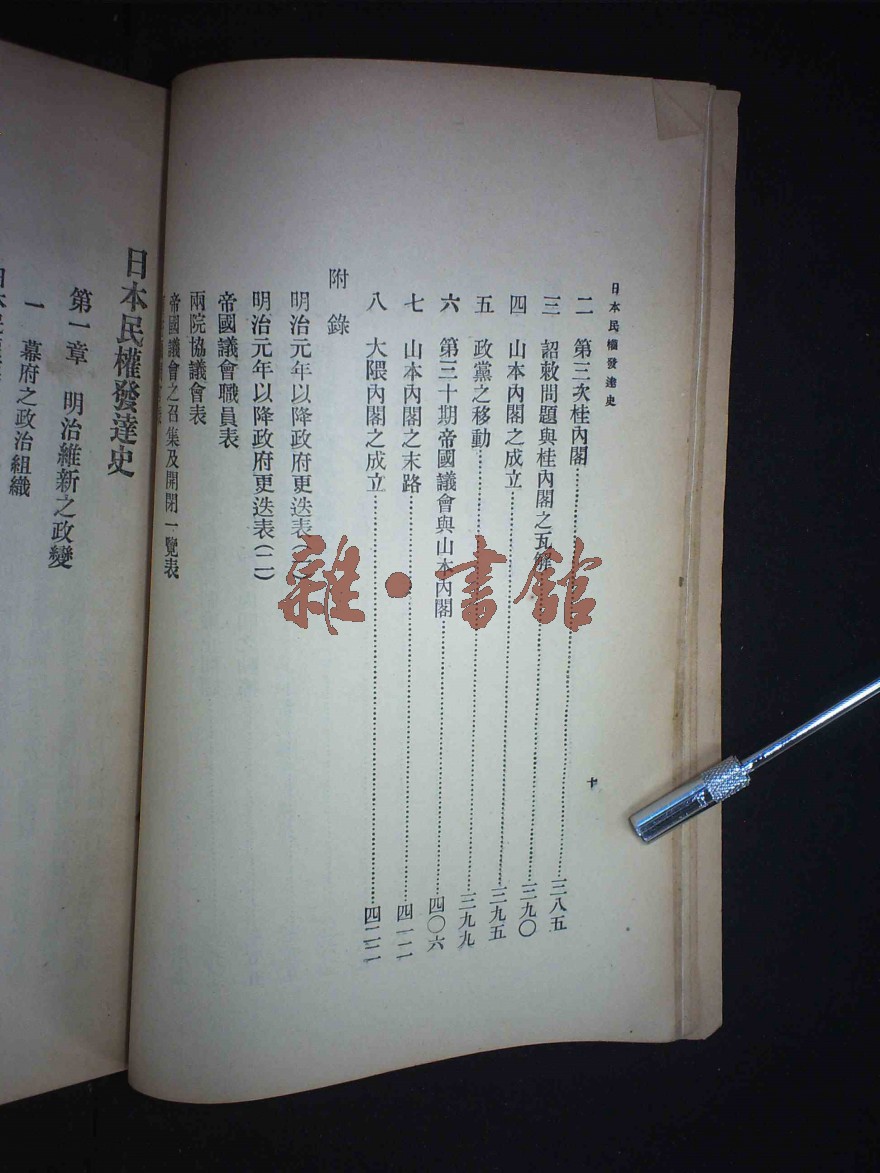 日本民權發達史
二 第三次桂內閣……三八五
三 詔敕問題與桂內閣之瓦解……三九〇
四 山本內閣之成立……三九五
五 政黨之移動……三九九
六 第三十期帝國議會與山本內閣……四〇六
七 山本內閣之末路……四一一
八 大隈內閣之成立……四二二
十
附錄
明治元年以降政府更迭表
明治元年以降政府更迭表(二)
帝國議會職員表
兩院協議會表
帝國議會之召集及開閉一覽表
日本民權發達史
第一章 明治維新之政變
一 幕府之政治組織
雜·書館